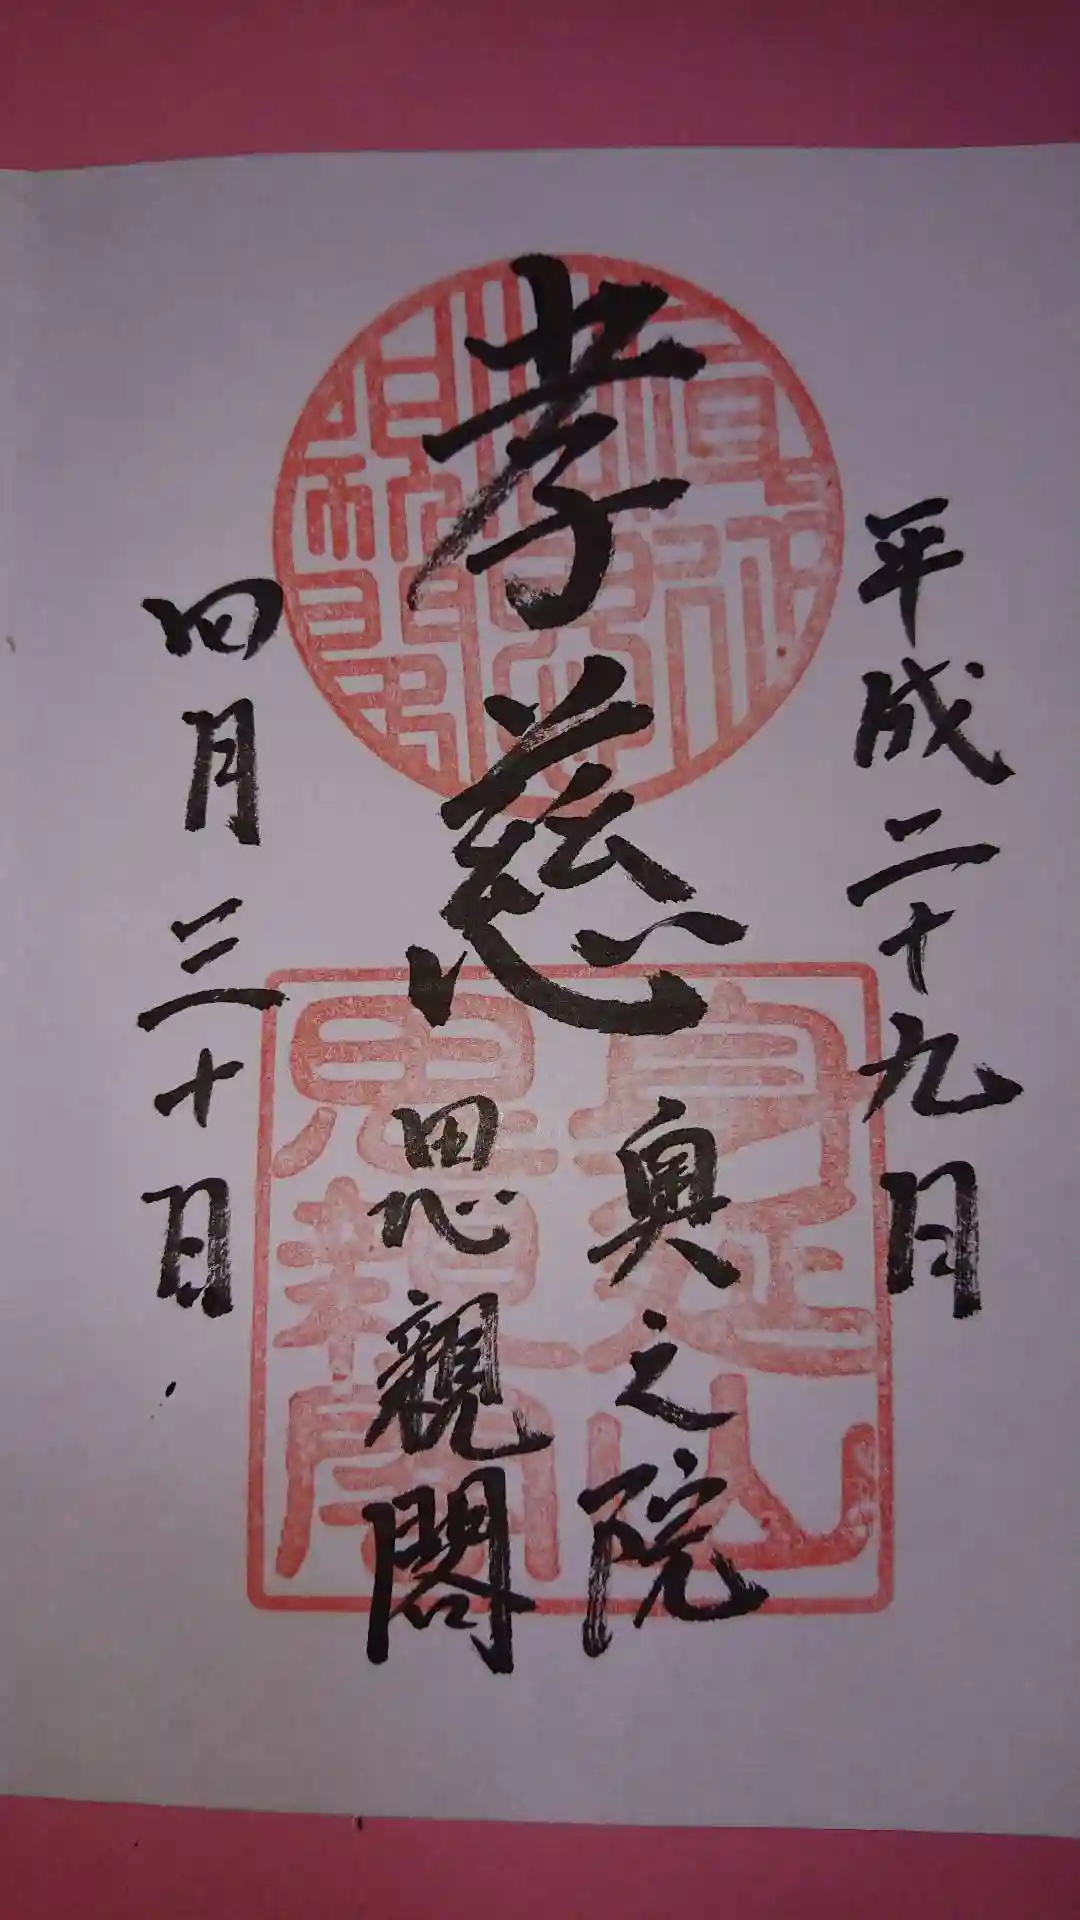 平成二十九日
孝慈
奥之院
思親閣
四月三十日
身延山
思親閣